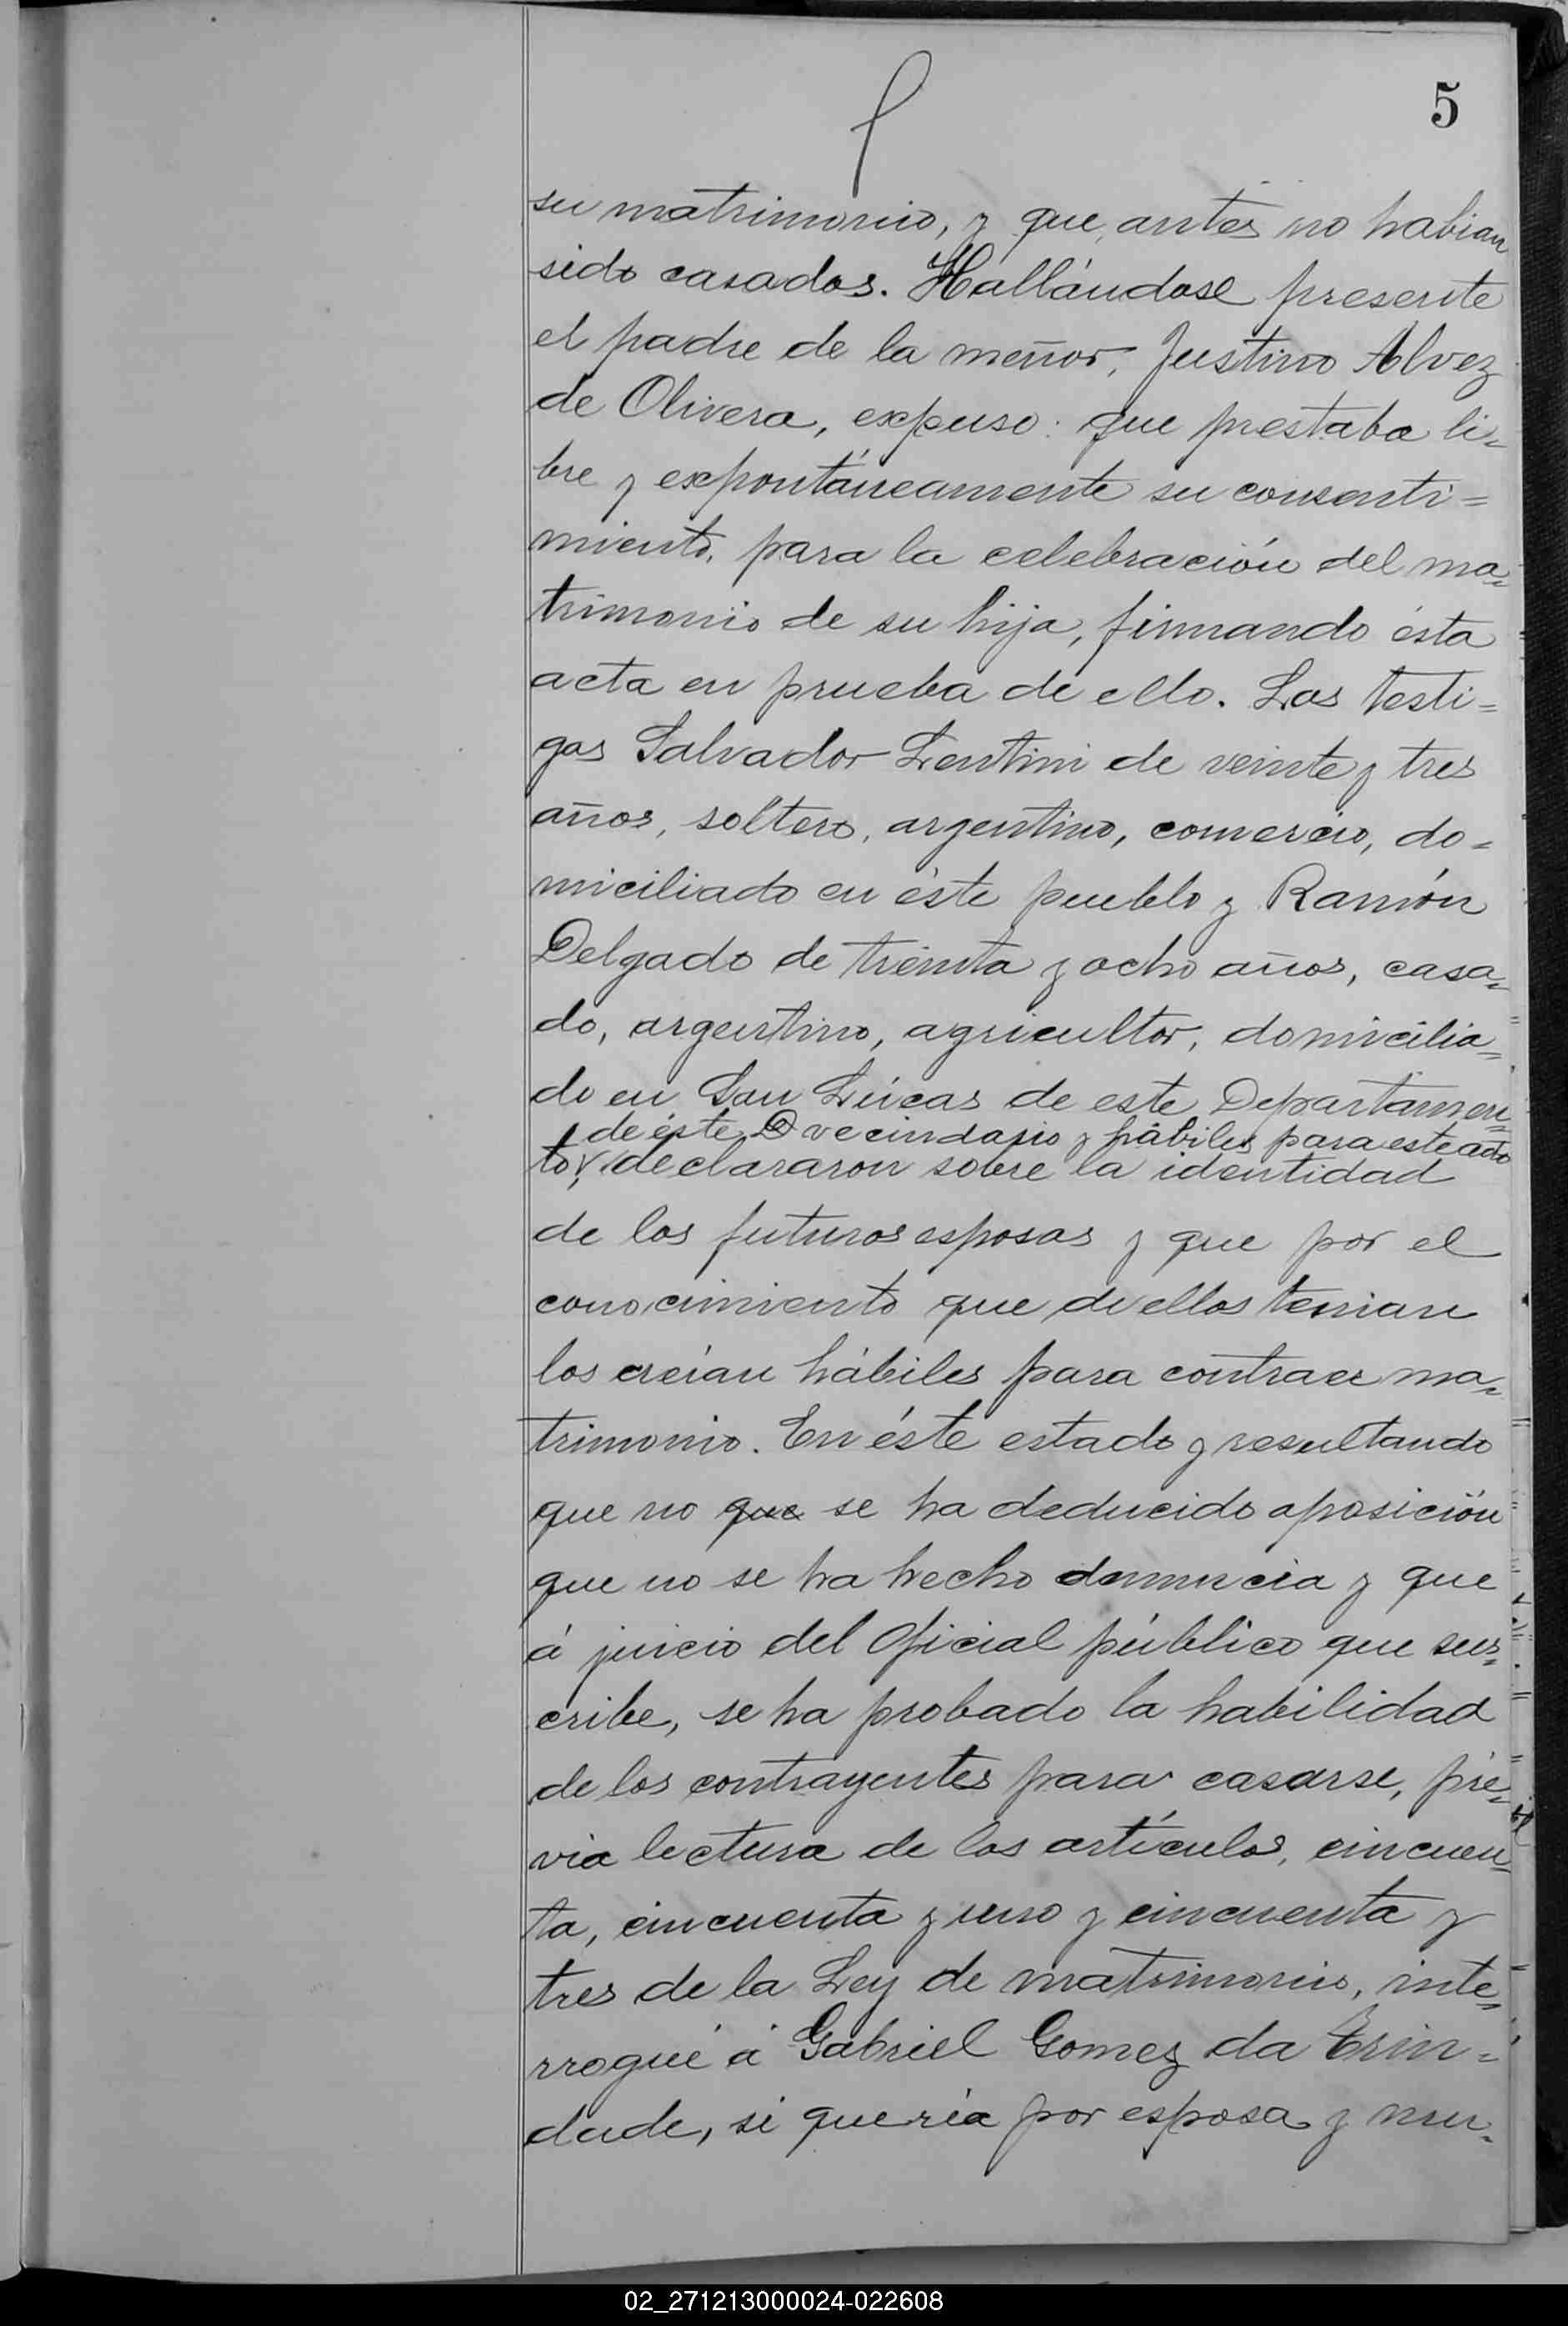 5
su matrimonio, y que, antes no habian
sido casados. Hallándose presente
el padre de la menor, Justino Alvez
de Olivera, expuso: que prestaba li=
bre y expontáneamente su consenti=
miento, para la celebración del ma=
trimonio de su hija, firmando ésta
acta en prueba de ello. Los testi=
gos Salvador Lentini de veinte y tres
años, soltero, argentino, comercio, do=
miciliado en éste pueblo y Ramón
Delgado de treinta y ocho años, casa=
do, argentino, agricultor, domicilia=
do en San Lúcas de este Departamen=
de éste vecindario y hábiles para este acto
to, declararon sobre la identidad
de los futuros esposos y que por el
conocimiento que de ellos tenian
los creían hábiles para contraer ma=
trimonio. En éste estado y resultando
que no que se ha deducido oposición
que no se ha hecho denuncia y que
á juicio del Oficial público que sus=
cribe, se ha probado la habilidad
de los contrayentes para casarse, pré=
via lectura de los artículos, cincuen=
ta, cincuenta y uno y cincuenta y
tres de la Ley de matrimonio, inte=
rrogué á Gabriel Gomez da Trin=
dade, si quería por esposa y mu=
02_271213000024-022608